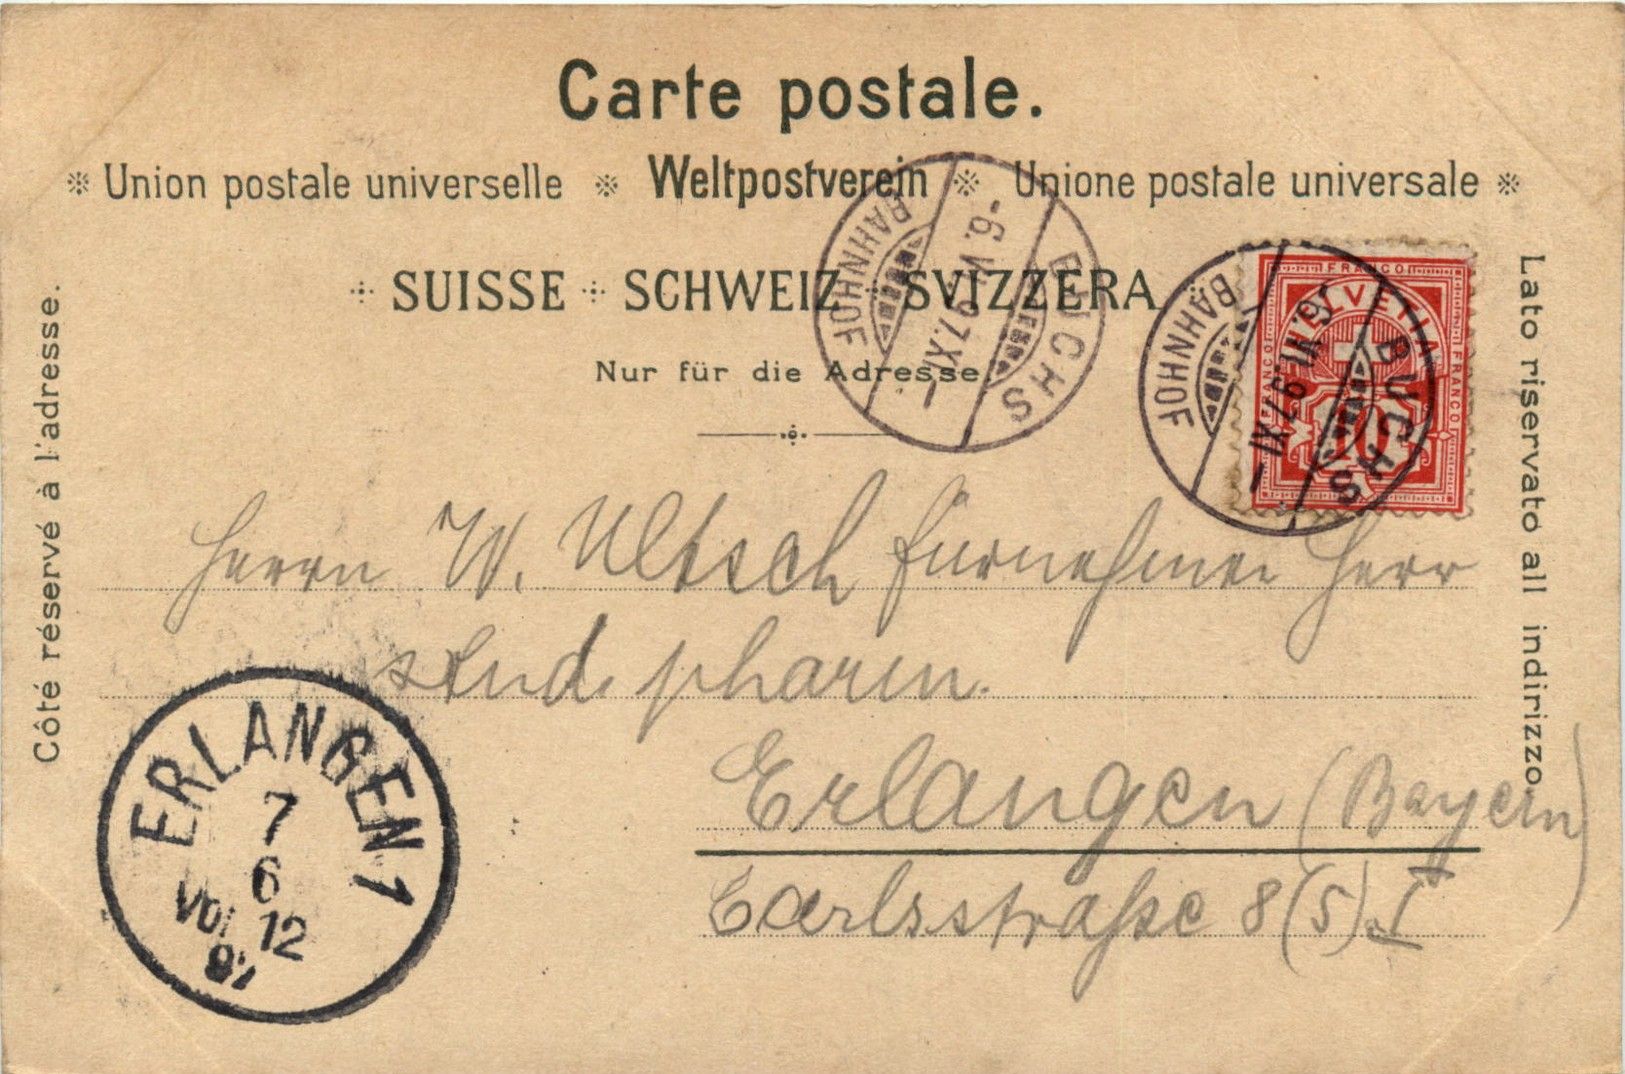 Carte postale.
※ Union postale universelle ※ Weltpostverein ※ Unione postale universale ※
SUISSE SCHWEIZ SVIZZERA
Nur für die Adresse
Côté réservé à l'adresse.
Lato riservato all indirizzo.
BUCHS
-6.VI.97.XI-
BAHNHOF
BUCHS
-6.VI.97.XI-
BAHNHOF
FRANCO
HELVETIA
FRANCO
FRANCO
10
Herrn W. Ultsch fürnehmer Herr
stud. pharm.
Erlangen (Bayern)
Carlsstraße 8 (5).I
ERLANGEN 1
7
6
Vor 12
97